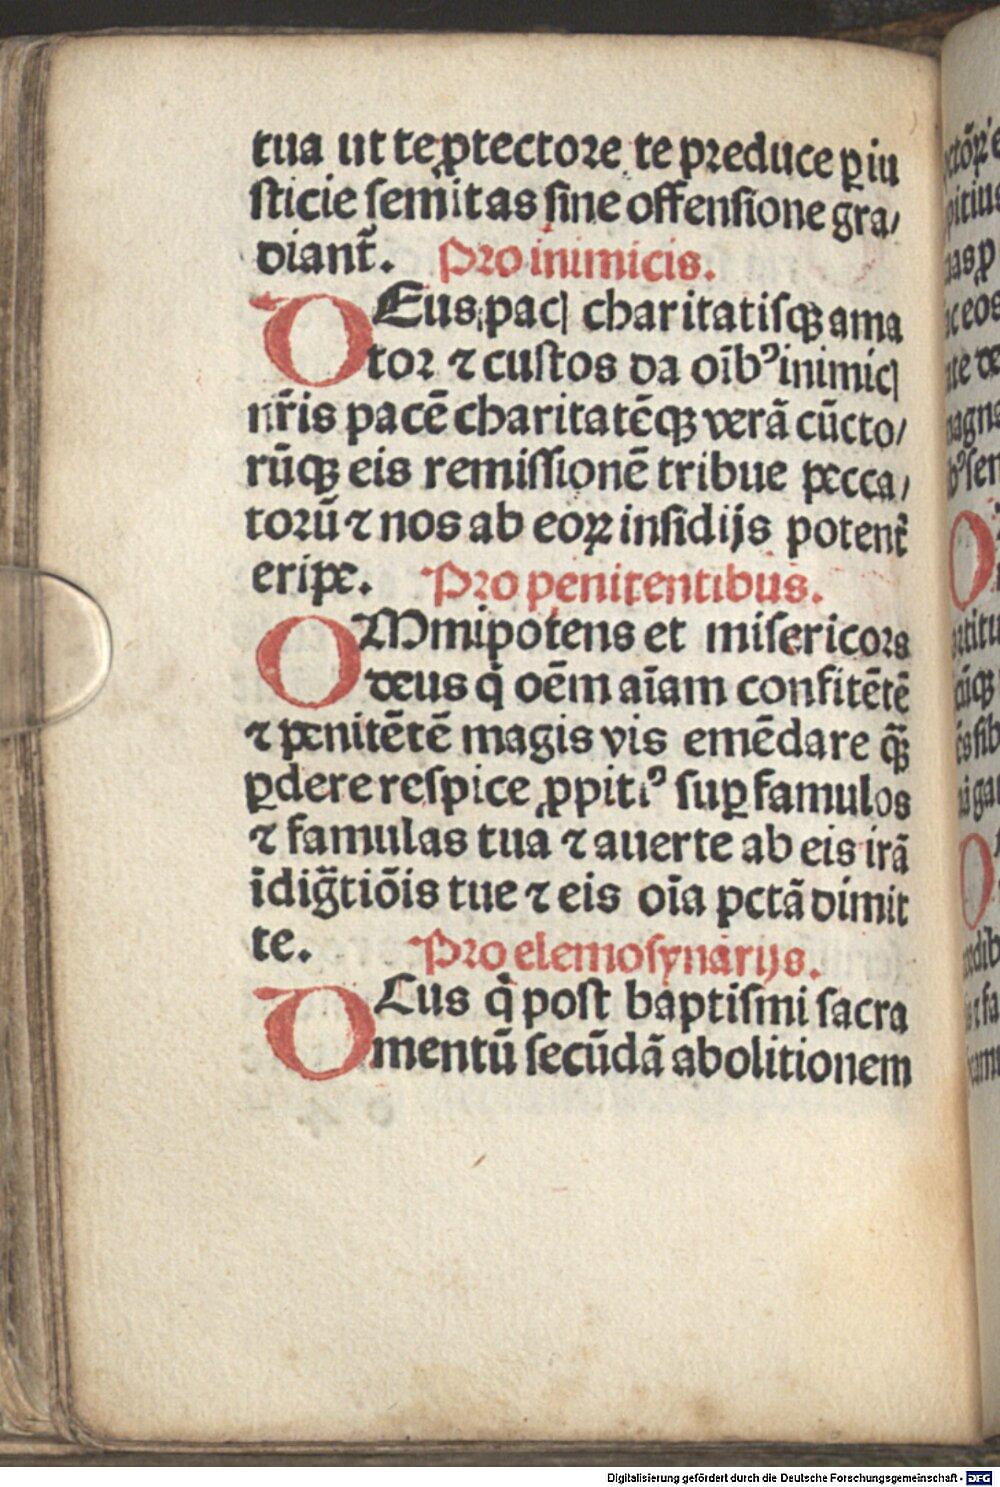 tua ut te ꝓtectore te preduce ꝑ iu
sticie semitas sine offensione gra/
diant᷑. Pro inimicis.
DEus pacꝭ charitatisqꝫ ama
tor ⁊ custos da oībꝰ inimicꝭ
nr̄is pacē charitatēqꝫ verā cūcto/
rūqꝫ eis remissionē tribue pecca/
torū ⁊ nos ab eoꝝ insidijs potent᷑
eripe. Pro penitentibus.
OMmipotens et misericors
deus q̇ oēm aīam confitētē
⁊ penitētē magis vis emēdare qꝫ̄
ꝑdere respice ꝓpitiꝰ suꝑ famulos
⁊ famulas tua ⁊ auerte ab eis irā
īdiḡtiōis tue ⁊ eis oīa pctā dimit
te. Pro elemosynarijs.
DEus q̇ post baptismi sacra
mentū secūdā abolitionem
Digitalisierung gefördert durch die Deutsche Forschungsgemeinschaft - DFG